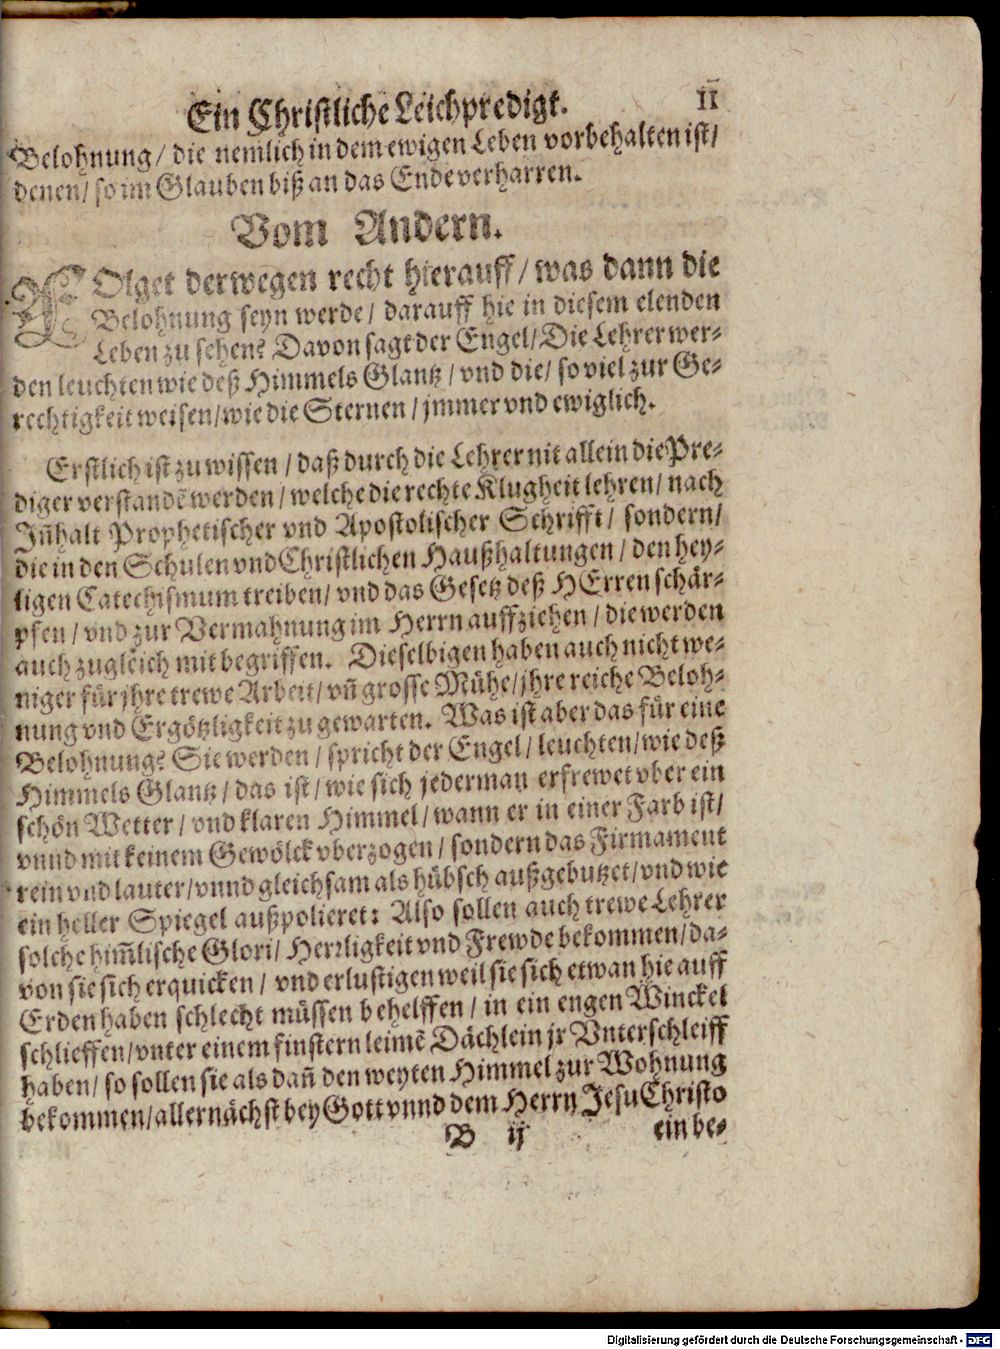 Ein Christliche Leichpredigt. 11
Belohnung/ die nemlich in dem ewigen Leben vorbehalten ist/
denen/ so im Glauben biß an das Ende verharren.
Vom Andern.
FOlget derwegen recht hierauff/ was dann die
Belohnung seyn werde/ darauff hie in diesem elenden
Leben zu sehen? Davon sagt der Engel/ Die Lehrer wer-
den leuchten wie deß Himmels Glantz/ vnd die/ so viel zur Ge-
rechtigkeit weisen/ wie die Sternen/ jmmer vnd ewiglich.
Erstlich ist zu wissen/ daß durch die Lehrer nit allein die Pre-
diger verstandẽ werden/ welche die rechte Klugheit lehren/ nach
Jñhalt Prophetischer vnd Apostolischer Schrifft/ sondern/
die in den Schulen vnd Christlichen Haußhaltungen/ den hey-
ligen Catechismum treiben/ vnd das Gesetz deß HErren schär-
pfen/ vnd zur Vermahnung im Herrn auffziehen/ die werden
auch zugleich mit begriffen. Dieselbigen haben auch nicht we-
niger für jhre trewe Arbeit/ vñ grosse Mühe/ jhre reiche Beloh-
nung vnd Ergötzligkeit zu gewarten. Was ist aber das für eine
Belohnung? Sie werden/ spricht der Engel/ leuchten/ wie deß
Himmels Glantz/ das ist/ wie sich jederman erfrewet vber ein
schön Wetter/ vnd klaren Himmel/ wann er in einer Farb ist/
vnnd mit keinem Gewölck vberzogen/ sondern das Firmament
rein vnd lauter/ vnnd gleichsam als hübsch außgebutzet/ vnd wie
ein heller Spiegel außpolieret: Also sollen auch trewe Lehrer
solche him̃lische Glori/ Herrligkeit vnd Frewde bekommen/ da-
von sie sich erquicken/ vnd erlustigen weil sie sich etwan hie auff
Erden haben schlecht müssen behelffen/ in ein engen Winckel
schlieffen/ vnter einem finstern leimẽ Dächlein jr Vnterschleiff
haben/ so sollen sie als dañ den weyten Himmel zur Wohnung
bekommen/ allernächst bey Gott vnnd dem Herrn Jesu Christo
B ij ein be-
Digitalisierung gefördert durch die Deutsche Forschungsgemeinschaft - DFG